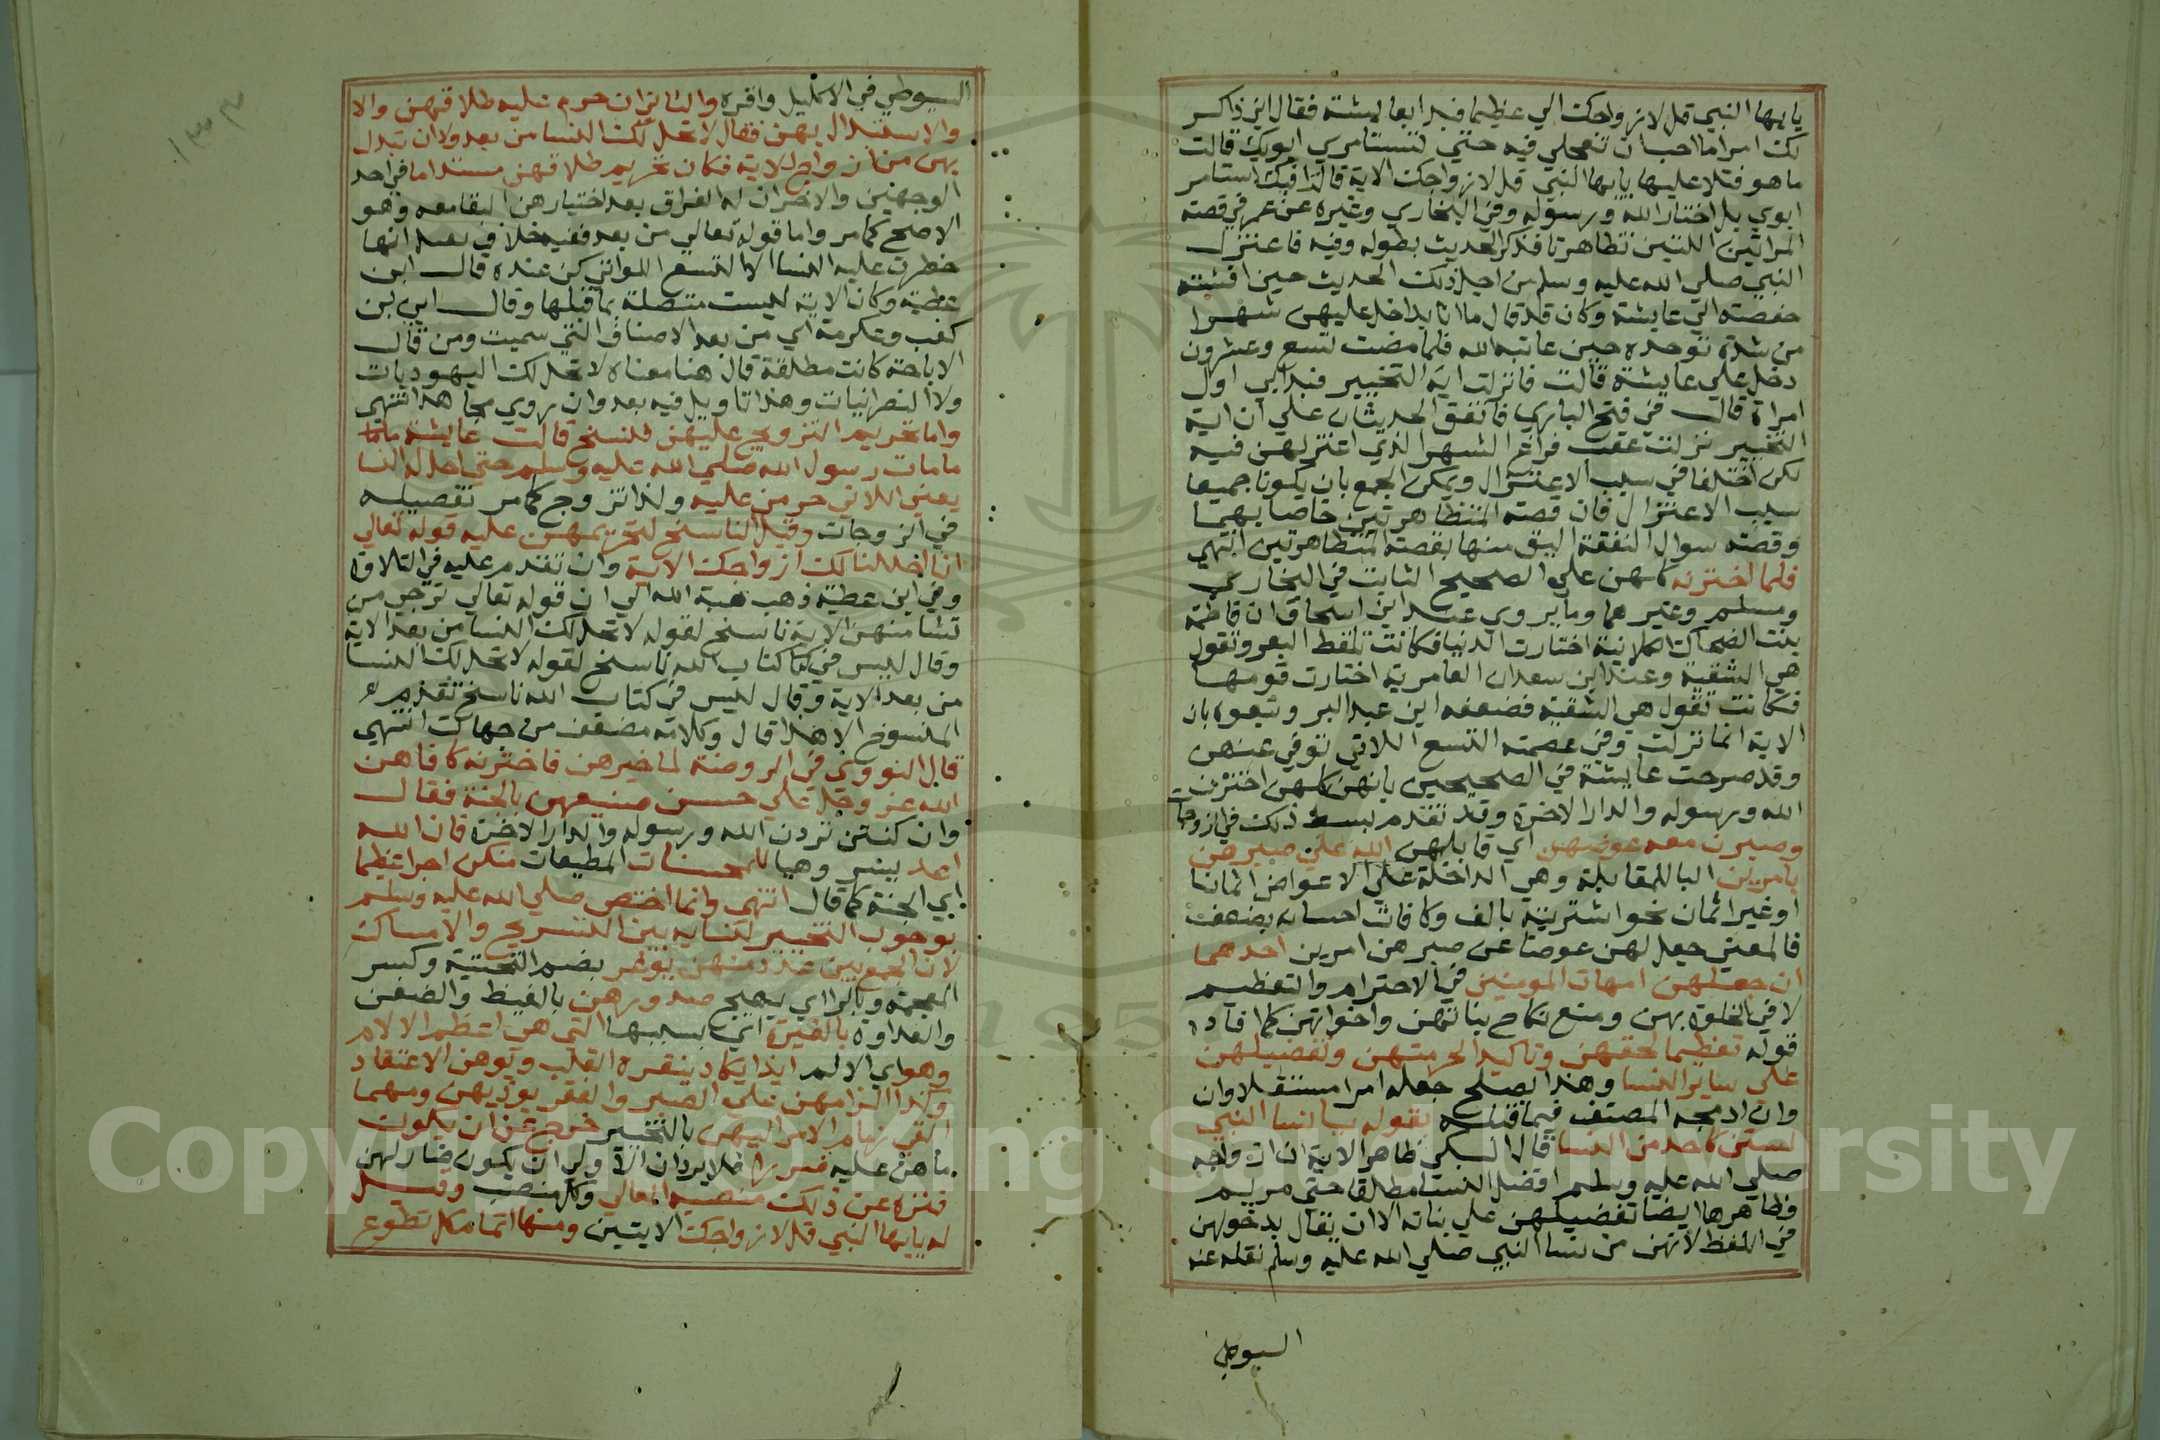 يايها النبي قل لازواجك الي عظيما فبدا بعايشة فقال اني ذاكر
لك امرا ما احب ان تعجلي فيه حتي تستامري ابويك قالت
ما هو فتلا عليها يايها النبي قل لازواجك الاية قالت افيك استامر
ابوي بل اختار الله ورسوله وفي البخاري وغيره عن عمر في قصة
المراتين اللتين تظاهرتا فذكر الحديث بطوله وفيه فاعتزل
النبي صلي الله عليه وسلم من اجل ذلك الحديث حين افشته
حفصة الي عايشة وكان قد قال ما انا بداخل عليهن شهرا
من شدة توحده حين عاتبه الله فلما مضت تسع وعشرون
دخل علي عايشة قالت فانزلت اية التخيير فبدا بي اول
امراة قال في فتح الباري فاتفق الحديثان علي ان اية
التخيير نزلت عقب فراغ الشهر الذي اعتزلهن فيه
لكن اختلفا في سبب الاعتزال ويمكن الجمع بان يكونا جميعا
سبب الاعتزال فان قصة المتظاهرتين خاصا بهما
وقصة سوال النفقة اليق منها بقصة المتظاهرتين انتهي
فلما اخترنه كلهن علي الصحيح الثابت في البخاري
ومسلم وغيرهما وما يروي عند ابن اسحاق ان فاطمة
بنت الضحاك الكلابية اختارت الدنيا فكانت تلقط البعر وتقول
هي الشقية وعند ابن سعد ان العامرية اختارت قومها
فكانت تقول هي الشقية فضعفه ابن عبد البر وتبعوه بان
الاية انما نزلت وفي عصمته التسع اللاتي توفي عنهن
وقد صرحت عايشة في الصحيحين بانهن كلهن اخترن
الله ورسوله والدار الاخرة وقد تقدم بسط ذلك في الزوجات
وصبرن معه عوضهن اي قابلهن الله علي صبرهن
بامرين البا للمقابلة وهي الداخلة علي الاعواض اثمانا
او غير اثمان نحو اشتريته بالف وكافات احسانه بضعف
فالمعني جعل لهن عوضا عن صبرهن امرين احدهما
ان جعلهن امهات المومنين في الاحترام والتعظيم
لا في الخلوة بهن ومنع نكاح بناتهن واخواتهن كما افاده
قوله تعظيما لحقهن وتاكيدا لحرمتهن وتفضيلهن
علي ساير النسا وهذا يصلح جعله امرا مستقلا وان
وان ادمجه المصنف فيما قبله بقوله يا نسا النبي
لستن كاحد من النسا قال السبكي ظاهر الاية ان ازواجه
صلي الله عليه وسلم افضل النسا مطلقا حتي مريم
وظاهرها ايضا تفضيلهن علي بناته الا ان يقال بدخولهن
في اللفظ لانهن من نسا النبي صلي الله عليه وسلم نقله عنه
السيوطي
السيوطي في الاكليل واقره والثاني ان حرم عليه طلاقهن والا
والاستبدال بهن فقال لا تحل لك النسا من بعد ولا ان تبدل
بهن من ازواج الاية فكان تحريم طلاقهن مستداما في احد
الوجهين والاخر ان له الفراق بعد اختيارهن البقا معه وهو
الاصح كما مر واما قوله تعالي من بعد ففيه خلاف فعند انها
حظرت عليه النسا الا التسع اللواتي كن عنده قال ابن
عطية وكان الاية ليست متصلة بما قبلها وقال ابي بن
كعب وعكرمة اي من بعد الاصناف التي سميت ومن قال
الاباحة كانت مطلقة قال هنا معناه لا تحل لك اليهوديات
ولا النصرانيات وهذا تاويل فيه بعد وان روي مجاهد انتهي
واما تحريم التزوج عليهن فنسخ قالت عايشة مامات
مامات رسول الله صلي الله عليه وسلم حتي احل له النسا
يعني اللاتي حرمن عليه ولذا تزوج كما مر تفصيله
في الزوجات وقيل الناسخ لتحريمهن عليه قوله تعالي
انا احللنا لك ازواجك الاية وان تقدم عليه في التلاوة
وفي ابن عطية ذهب هبة الله الي ان قوله تعالي ترجي من
تشا منهن الاية ناسخ لقوله لا تحل لك النسا من بعد الاية
وقال ليس في كتاب الله ناسخ لقوله لا تحل لك النسا
من بعد الاية وقال ليس في كتاب الله ناسخ تقدم
المنسوخ الا هذا قال وكلامه مضعف من جهات انتهي
قال النووي في الروضة لما خيرهن فاخترنه كافاهن
الله عز وجل علي حسن صنيعهن بالجنة فقال
وان كنتن تردن الله ورسوله والدار الاخرة فان الله
اعد يسر وهيا للمحسنات المطيعات منكن اجرا عظيما
اي الجنة كما قال انتهي وانما اختص صلي الله عليه وسلم
بوجوب التخيير لنسايه بين التسريح والامساك
لان الجمع بين عدد منهن يوغر بضم التحتية وكسر
المعجمة وبالرا اي يهيج صدورهن بالغيظ والضغن
والعداوة بالغيرة اي بسببها التي هي اعظم الالام
وهو اي الالم ايذا يكاد ينقره القلب وتوهن الاعتقاد
وكذا الزامهن علي الصبر والفقر يوذيهن ومهما
القي زمام الامر اليهن بالتخيير خرج عن ان يكون
ما هن عليه ضررا فلا يرد ان الاولي ان يكون ضارا لهن
فنزه عن ذلك منصبه العالي وكل منصب وقيل
له يايها النبي قل لازواجك الايتين ومنها اتمام كل تطوع